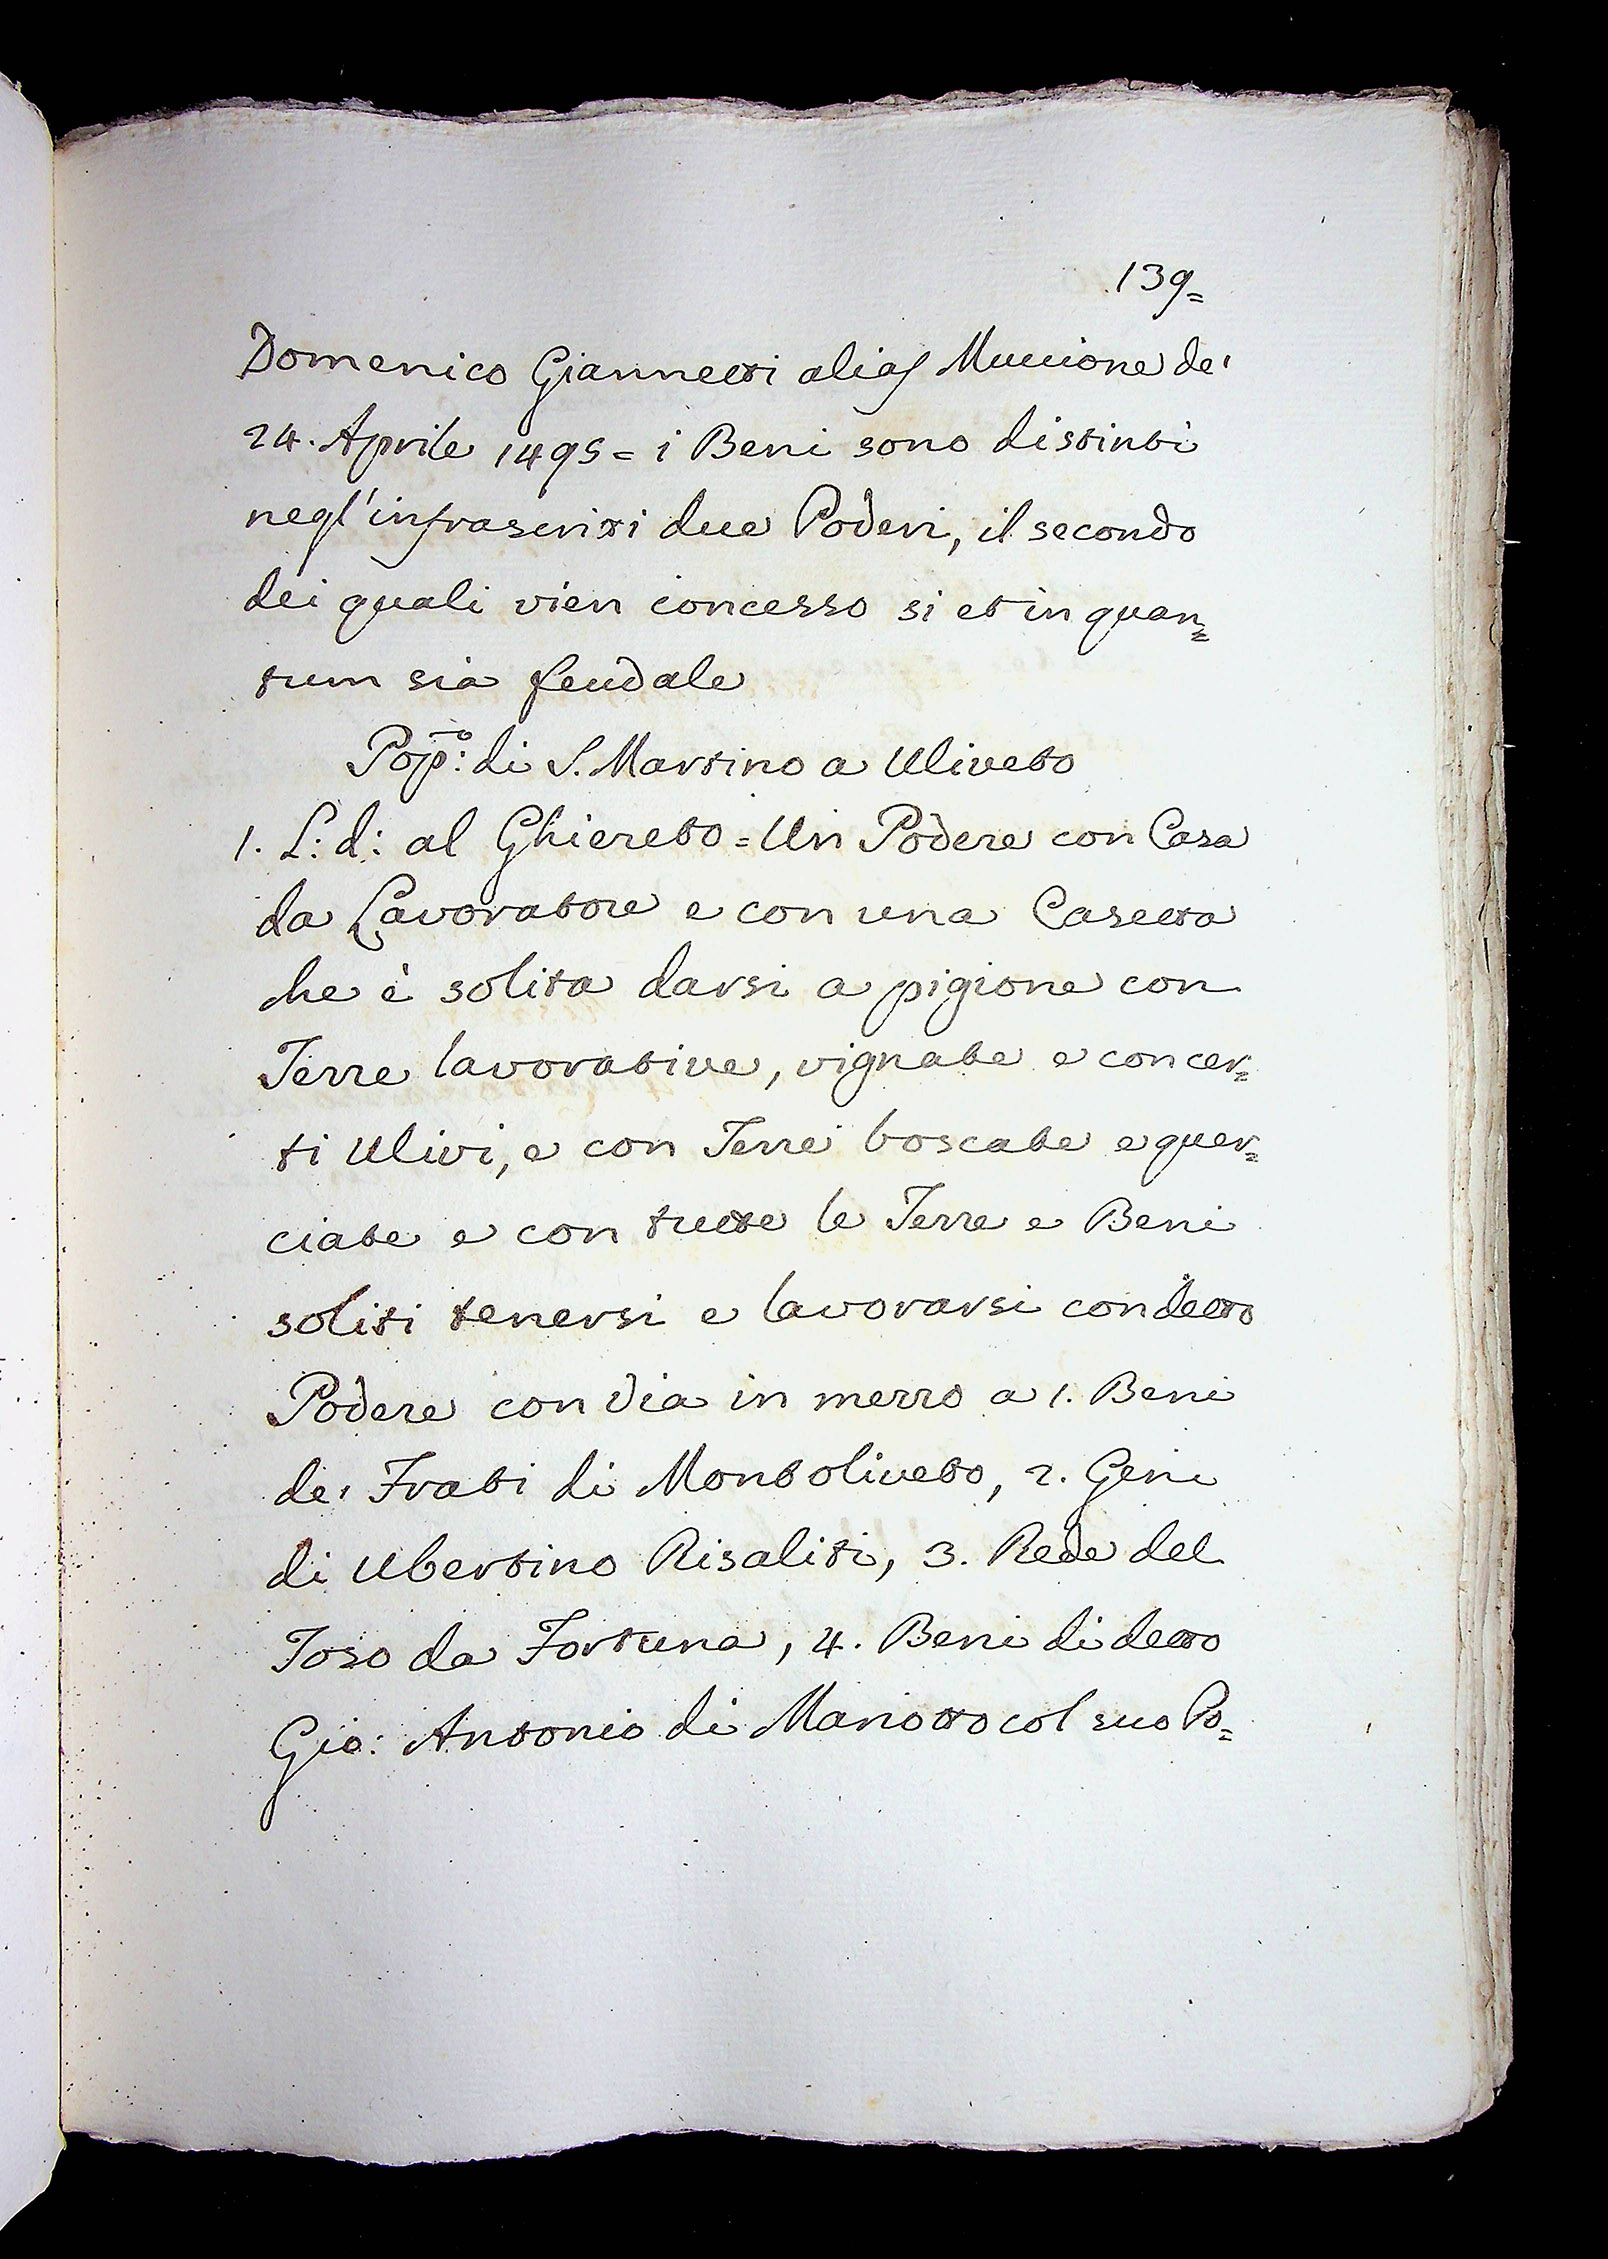 139=
Domenico Giannetti alias Muccione de'
24. Aprile 1495 = i Beni sono distinti
negl'infrascritti due Poderi, il secondo
dei quali vien concesso si et in quan=
tum sia feudale
Pop:o di S. Martino a Uliveto
1. L: d: al Ghiereto = Un Podere con Casa
da Lavoratore e con una Casetta
che è solita darsi a pigione con
Terre lavorative, vignate e con cer=
ti Ulivi, e con Terre boscate e quer=
ciate e con tutte le Terre e Beni
soliti tenersi e lavorarsi con detto
Podere con Via in mezzo a 1. Beni
de' Frati di Montoliveto, 2. Geni
di Ubertino Risaliti, 3. Rede del
Toso da Fortuna, 4. Beni di detto
Gio: Antonio di Mariotto col suo Po=